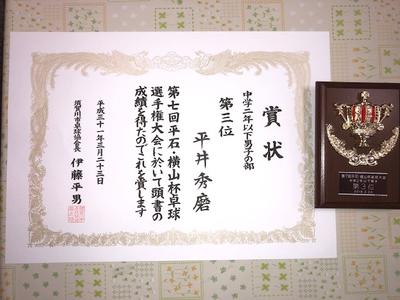 賞状
中学二年以下男子の部
第三位
平井秀磨
第七回平石・横山杯卓球
選手権大会に於いて頭書の
成績を得たのでこれを賞します
平成三十一年三月二十三日
須賀川市卓球協会長
伊藤平男
第3位